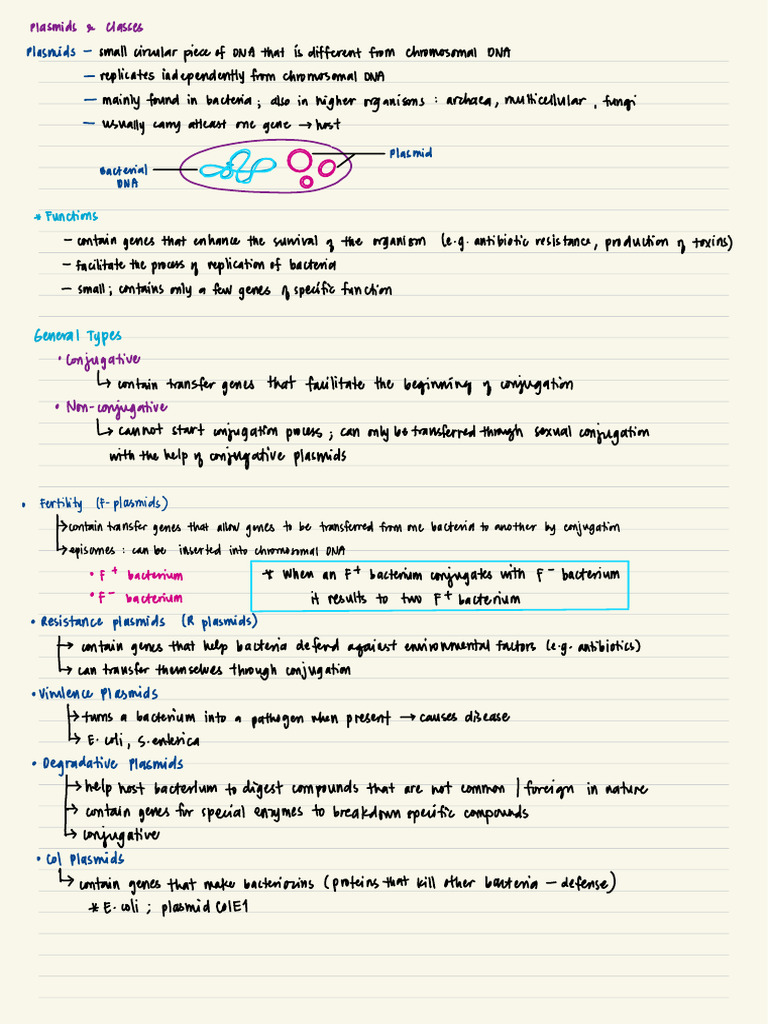 Plasmids & Classes
Plasmids – small circular piece of DNA that is different from chromosomal DNA
– replicates independently from chromosomal DNA
– mainly found in bacteria ; also in higher organisms : archaea, multicellular , fungi
– usually carry atleast one gene → host
Plasmid
Bacterial
DNA
* Functions
– contain genes that enhance the survival of the organism (e.g. antibiotic resistance, production of toxins)
– facilitate the process of replication of bacteria
– small ; contains only a few genes of specific function
General Types
• Conjugative
↳ contain transfer genes that facilitate the beginning of conjugation
• Non-conjugative
↳ cannot start conjugation process ; can only be transferred through sexual conjugation
with the help of conjugative plasmids
• Fertility (F-plasmids)
↳ contain transfer genes that allow genes to be transferred from one bacteria to another by conjugation
↳ episomes : can be inserted into chromosomal DNA
• F+ bacterium
• F- bacterium
* When an F+ bacterium conjugates with F- bacterium
it results to two F+ bacterium
• Resistance plasmids (R plasmids)
↳ contain genes that help bacteria defend against environmental factors (e.g. antibiotics)
↳ can transfer themselves through conjugation
• Virulence Plasmids
↳ turns a bacterium into a pathogen when present → causes disease
↳ E. coli, S. enterica
• Degradative Plasmids
↳ help host bacterium to digest compounds that are not common / foreign in nature
↳ contain genes for special enzymes to breakdown specific compounds
↳ conjugative
• Col Plasmids
↳ contain genes that make bacteriozins (proteins that kill other bacteria – defense)
* E. coli ; plasmid ColE1